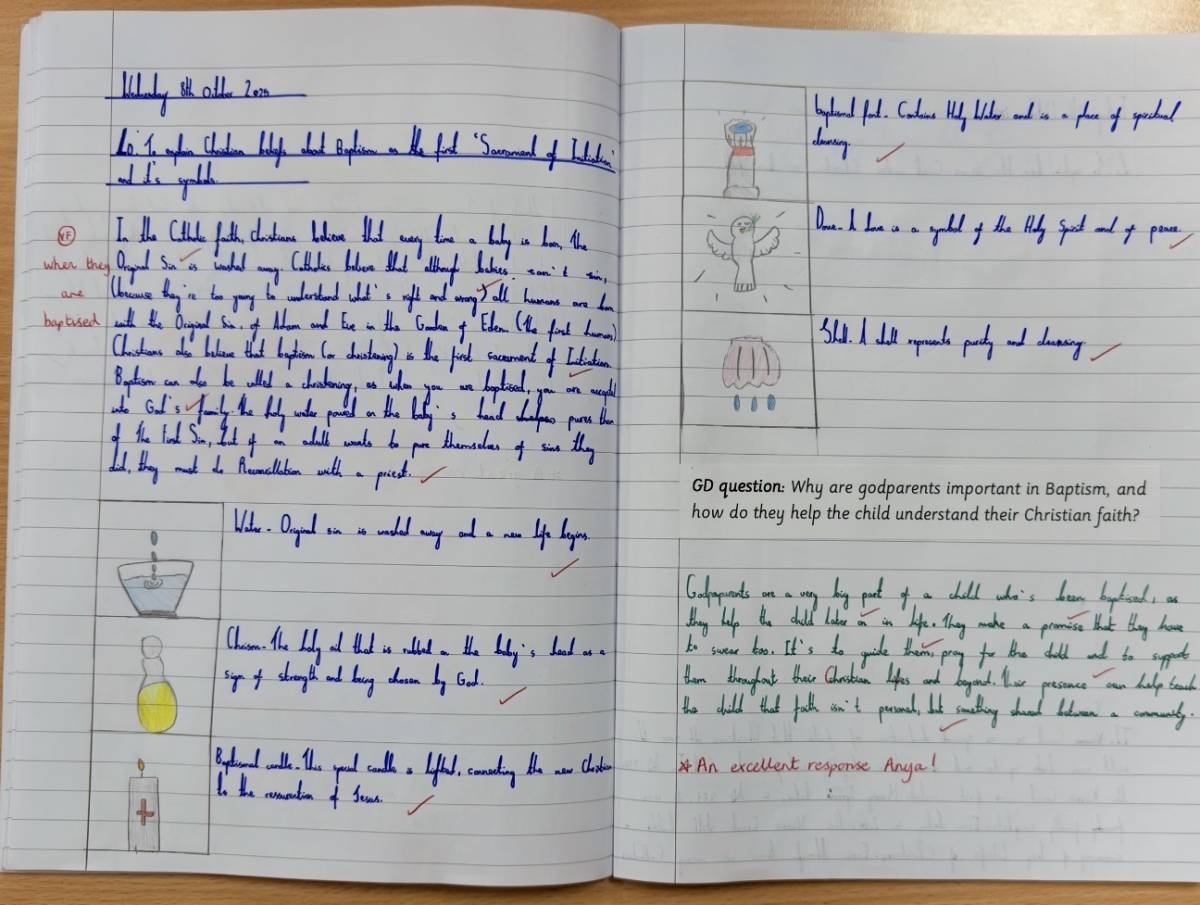 Wednesday 8th October 2025
L.O: To explain Christian beliefs about Baptism as the first 'Sacrament of Initiation'
and it's symbols.
In the Catholic faith, christians believe that every time a baby is born, the
VF
when they
are
baptised
Original Sin is washed away. Catholics believe that although babies can't sin,
(because they're too young to understand what's right and wrong) all humans are born
with the Original Sin, of Adam and Eve in the Garden of Eden. (the first humans)
Christians also believe that baptism (or christening) is the first sacrament of Initiation.
Baptism can also be called a christening, as when you are baptised, you are accepted
into God's family. The holy water poured on the baby's head pures them
of the First Sin, but if an adult wants to pure themselves of sins they
did, they must do Reconcillation with a priest.
Water - Original sin is washed away and a new life begins.
Chrism - The holy oil that is rubbed on the baby's head as a
sign of strength and being chosen by God.
Baptismal candle - This special candle is lifted, connecting the new Christian
to the resurrection of Jesus.
baptismal font - Contains Holy Water and is a place of spiritual
cleansing.
Dove - A dove is a symbol of the Holy Spirit and of peace.
Shell - A shell represents purity and cleansing.
GD question: Why are godparents important in Baptism, and
how do they help the child understand their Christian faith?
Godparents are a very big part of a child who's been baptised, as
they help the child later on in life. They make a promise that they have
to swear too. It's to guide them, pray for the child and to support
them throughout their Christian lifes and beyond. Their presence can help teach
the child that faith isn't personal, but something shared between a community.
* An excellent response Anya!